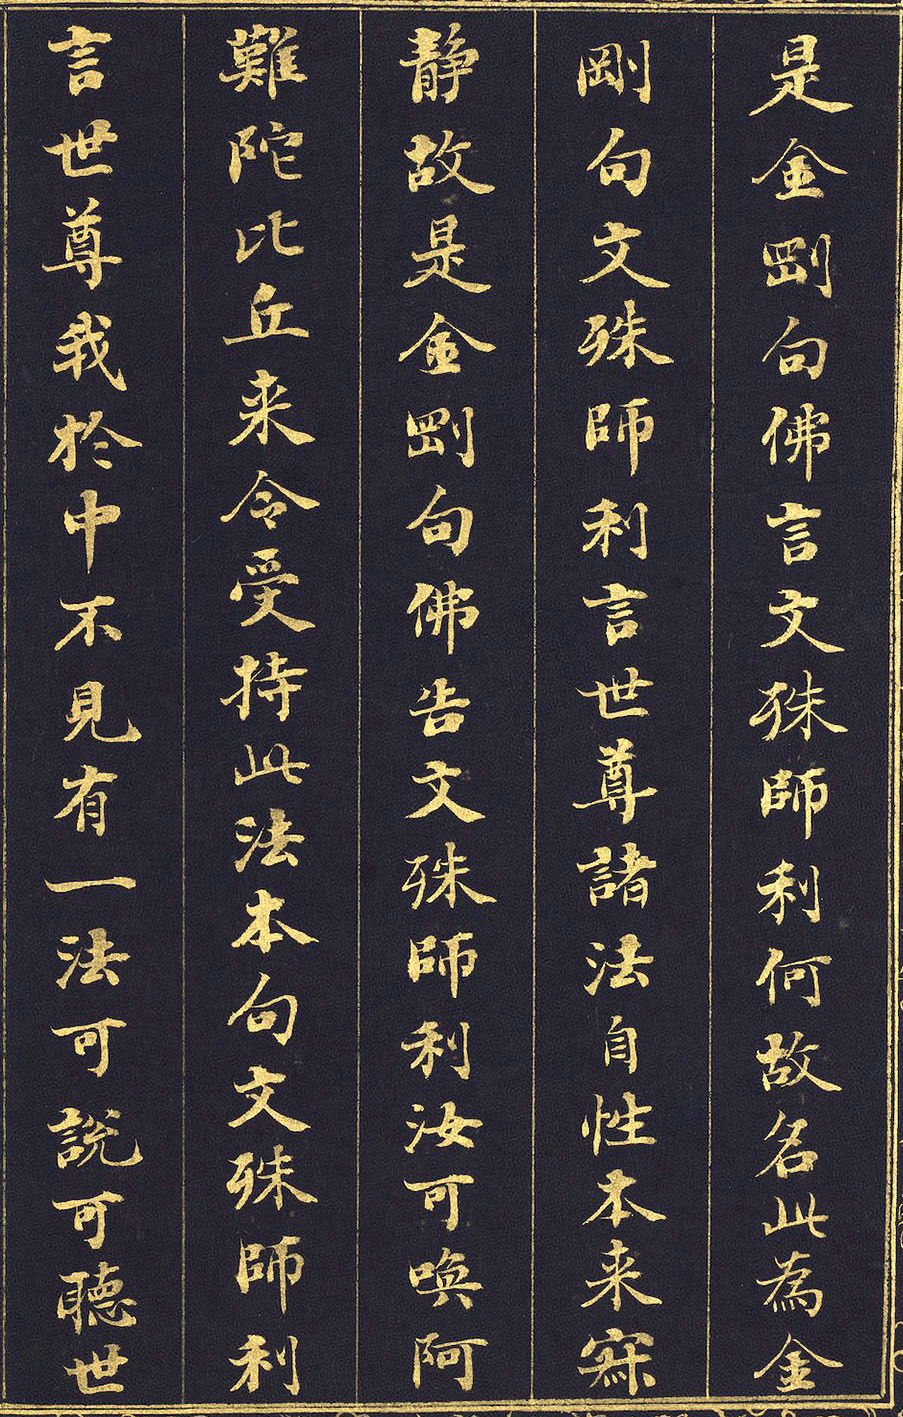 是金剛句佛言文殊師利何故名此為金
剛句文殊師利言世尊諸法自性本来寂
静故是金剛句佛告文殊師利汝可喚阿
難陀比丘来令受持此法本句文殊師利
言世尊我於中不見有一法可說可聽世